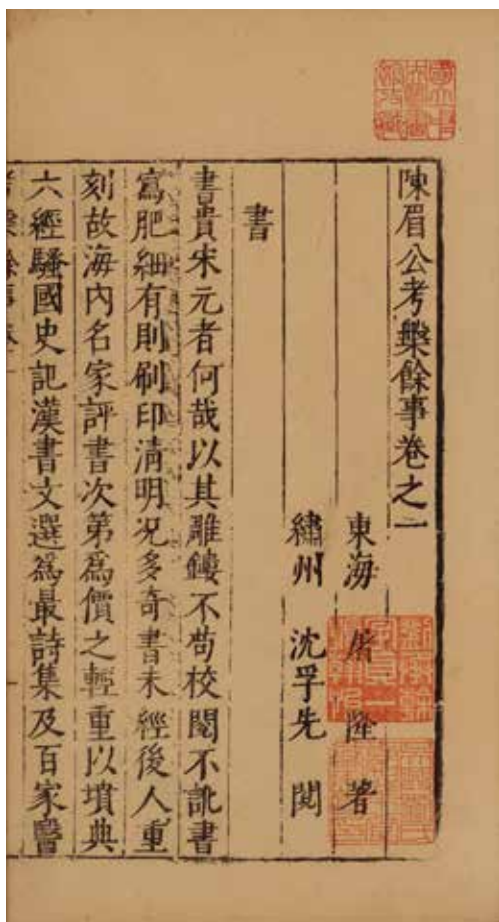 陳眉公考槃餘事卷之一
東海 屠 隆 著
繡州 沈孚先 閱
書
書貴宋元者何哉以其雕鏤不苟校閱不訛書
寫肥細有則刷印清明况多奇書未經後人重
刻故海內名家評書次第為價之輕重以墳典
六經騷國史記漢書文選為最詩集及百家醫